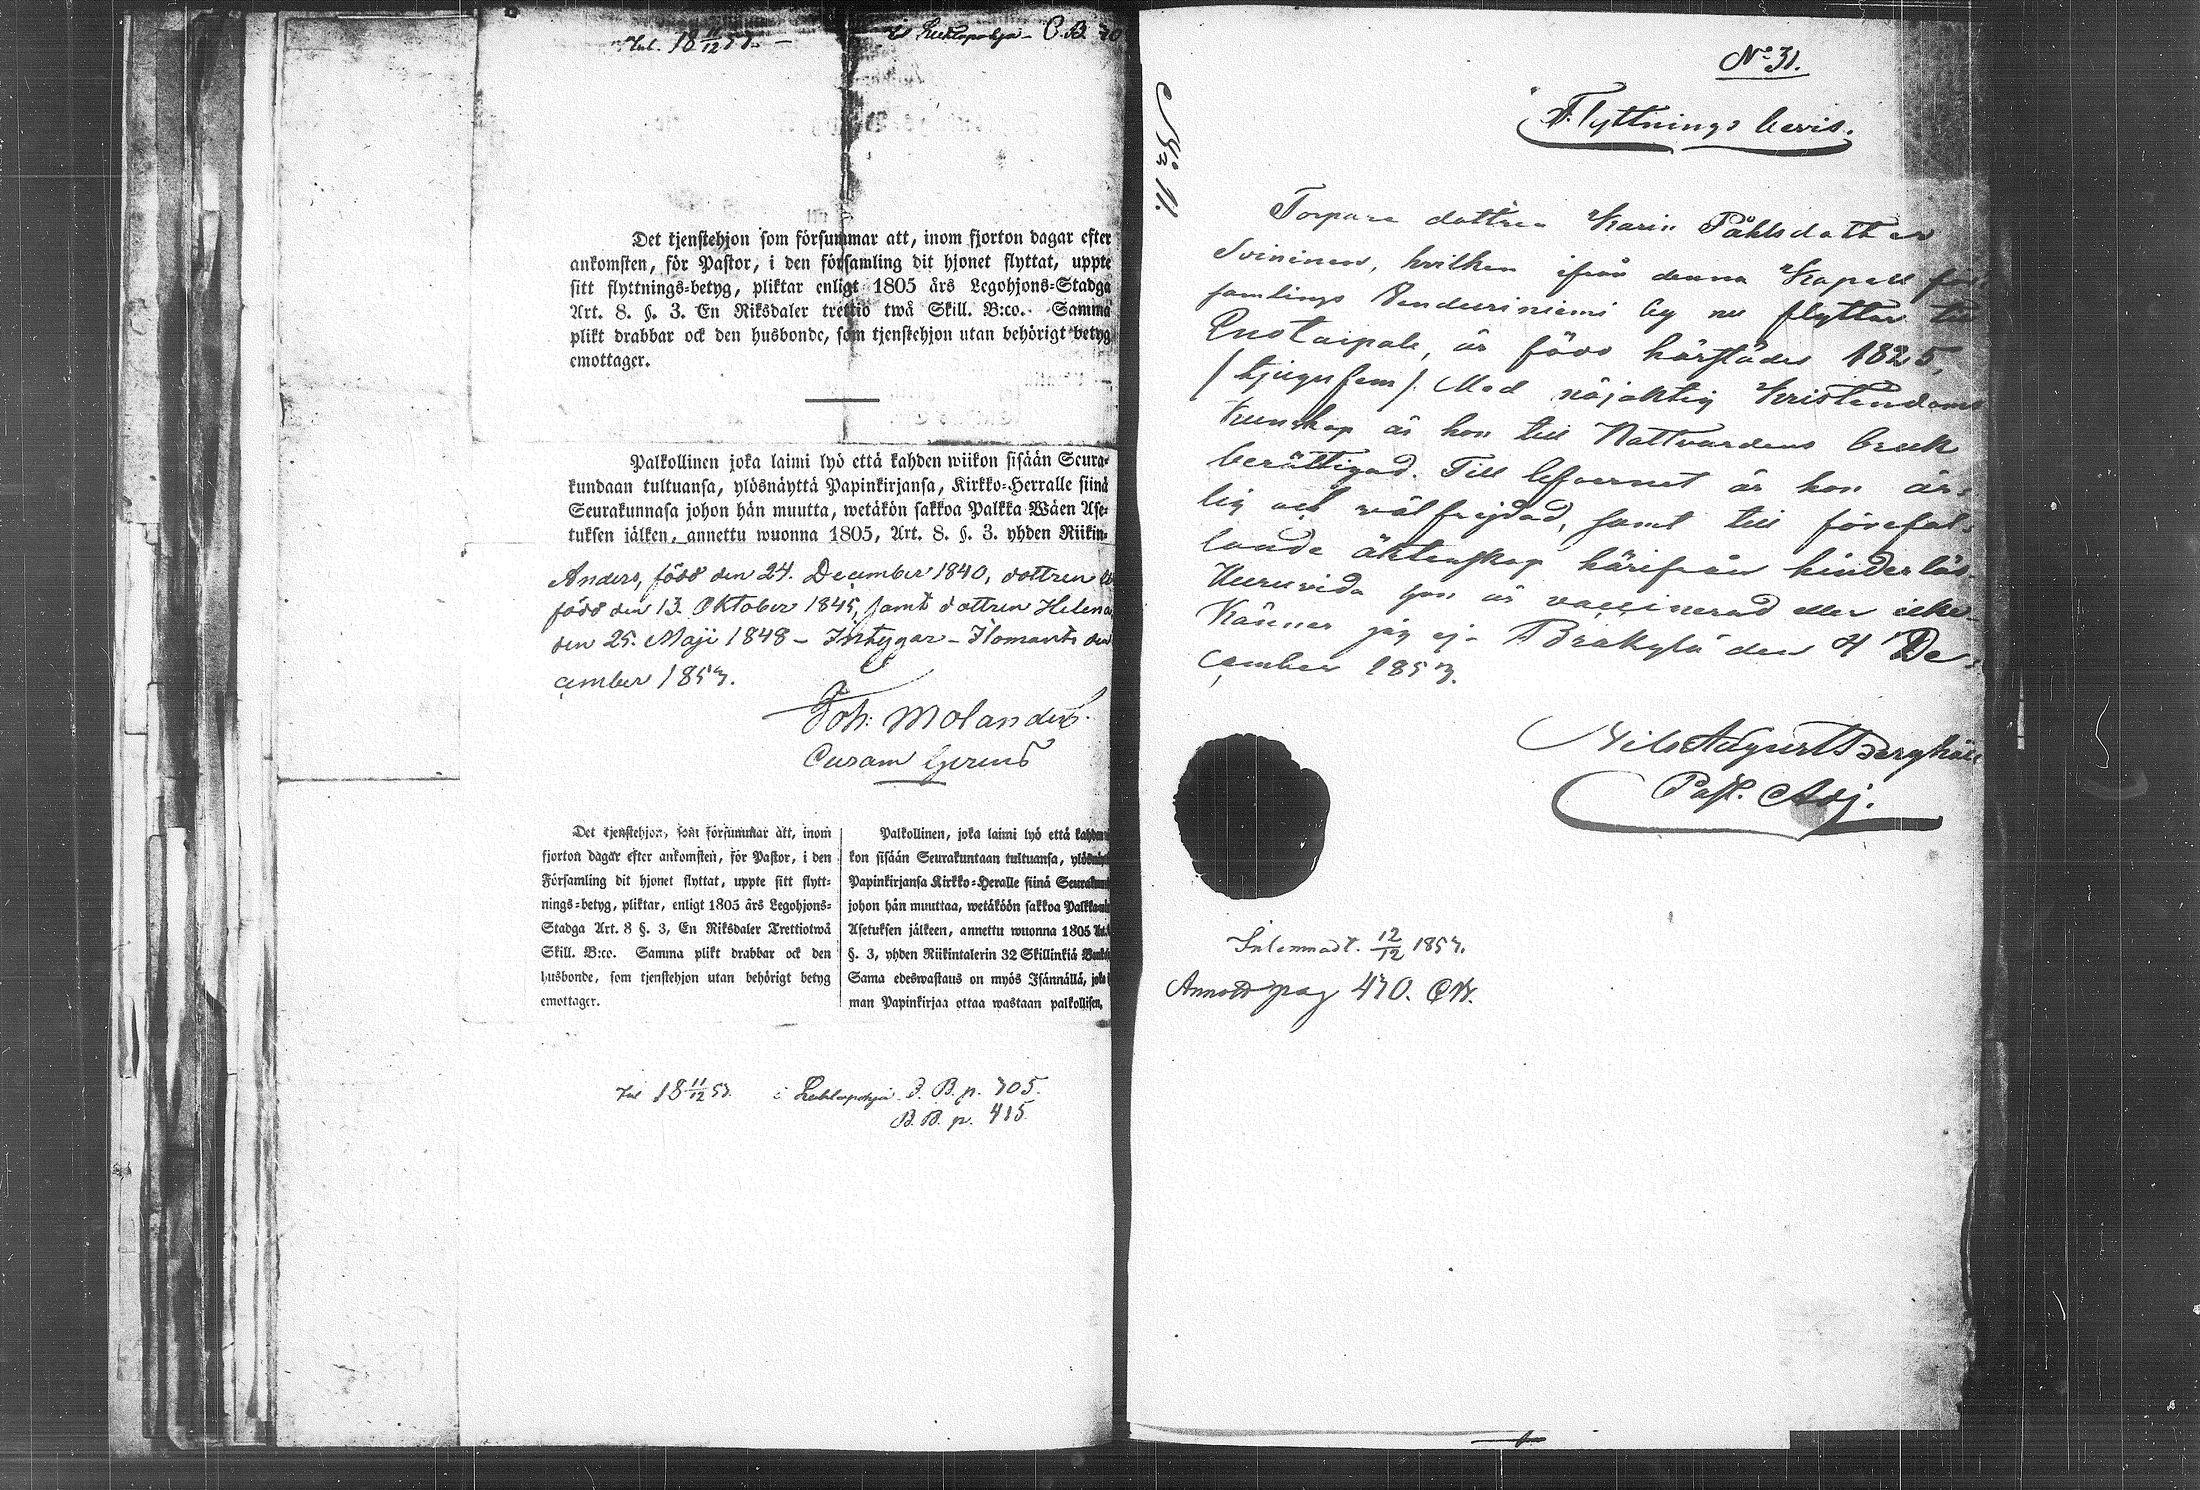 Inl. 18 11/12 53. — i Leiklopohja - C.B. 70
Det tjenstehjon som försummar att, inom fjorton dagar efter
ankomsten, för Pastor, i den församling dit hjonet flyttat, uppte
sitt flyttnings-betyg, pliktar enligt 1805 års Legohjons-Stadga
Art. 8. §. 3. En Riksdaler trettio twå Skill. B:co. Samma
plikt drabbar ock den husbonde, som tjenstehjon utan behörigt betyg
emottager.
Palkollinen joka laimi lyö että kahden wiikon sisään Seura-
kundaan tultuansa, ylösnäyttä Papinkirjansa, Kirkko-Herralle siinä
Seurakunnasa johon hän muutta, wetäkön sakkoa Palkka Wäen Ase-
tuksen jälken, annettu wuonna 1805, Art. 8. §. 3. yhden Riikin-
Anders, född den 24. December 1840, dottren
född den 13. Oktober 1845, samt dottren Helena
den 25. Maji 1848 - Intygar - Ilomants den
cember 1853.
Joh: Molander.
Curam Gerens
Det tjenstehjon, som försummar att, inom
fjorton dagar efter ankomsten, för Pastor, i den
Församling dit hjonet flyttat, uppte sitt flytt-
nings-betyg, pliktar, enligt 1805 års Legohjons-
Stadga Art. 8 §. 3, En Riksdaler Trettiotwå
Skill. B:co. Samma plikt drabbar ock den
husbonde, som tjenstehjon utan behörigt betyg
emottager.
Palkollinen, joka laimi lyö että kahden
kon sisään Seurakuntaan tultuansa,
Papinkirjansa Kirkko-Heralle siinä
johon hän muuttaa, wetäköön sakkoa
Asetuksen jälkeen, annettu wuonna 1805
§. 3, yhden Riikintalerin 32 Skillinkiä
Sama edeswastaus on myös Isännällä, joka
man Papinkirjaa ottaa wastaan palkollisen.
Inl 18 11/12 53. i D. B. p. 705.
B. B. p. 415.
No 31.
Flyttnings bevis.
No 11.
Torpare dottren Karin Påhlsdotter
Svininen, hvilken ifrån denna Kapell för
samlings by nu flyttar till
Enotaipale, är född härstädes 1825,
/tjugufem/. Med nöjaktig Kristendoms
kunskap är hon till Nattvardens bruk
berättigad. Till lefvernet är hon är-
lig och välfrejdad, samt till förefal-
lande äktenskap härifrån hinderlös.
Huruvida hon är vaccinerad eller icke
känner jag ej. Bräkylä den 4 De-
cember 1853.
Nils August Berghäll
Past. Adj.
Inlemnadt. 12/12 1853.
Annot pag 470. CB.